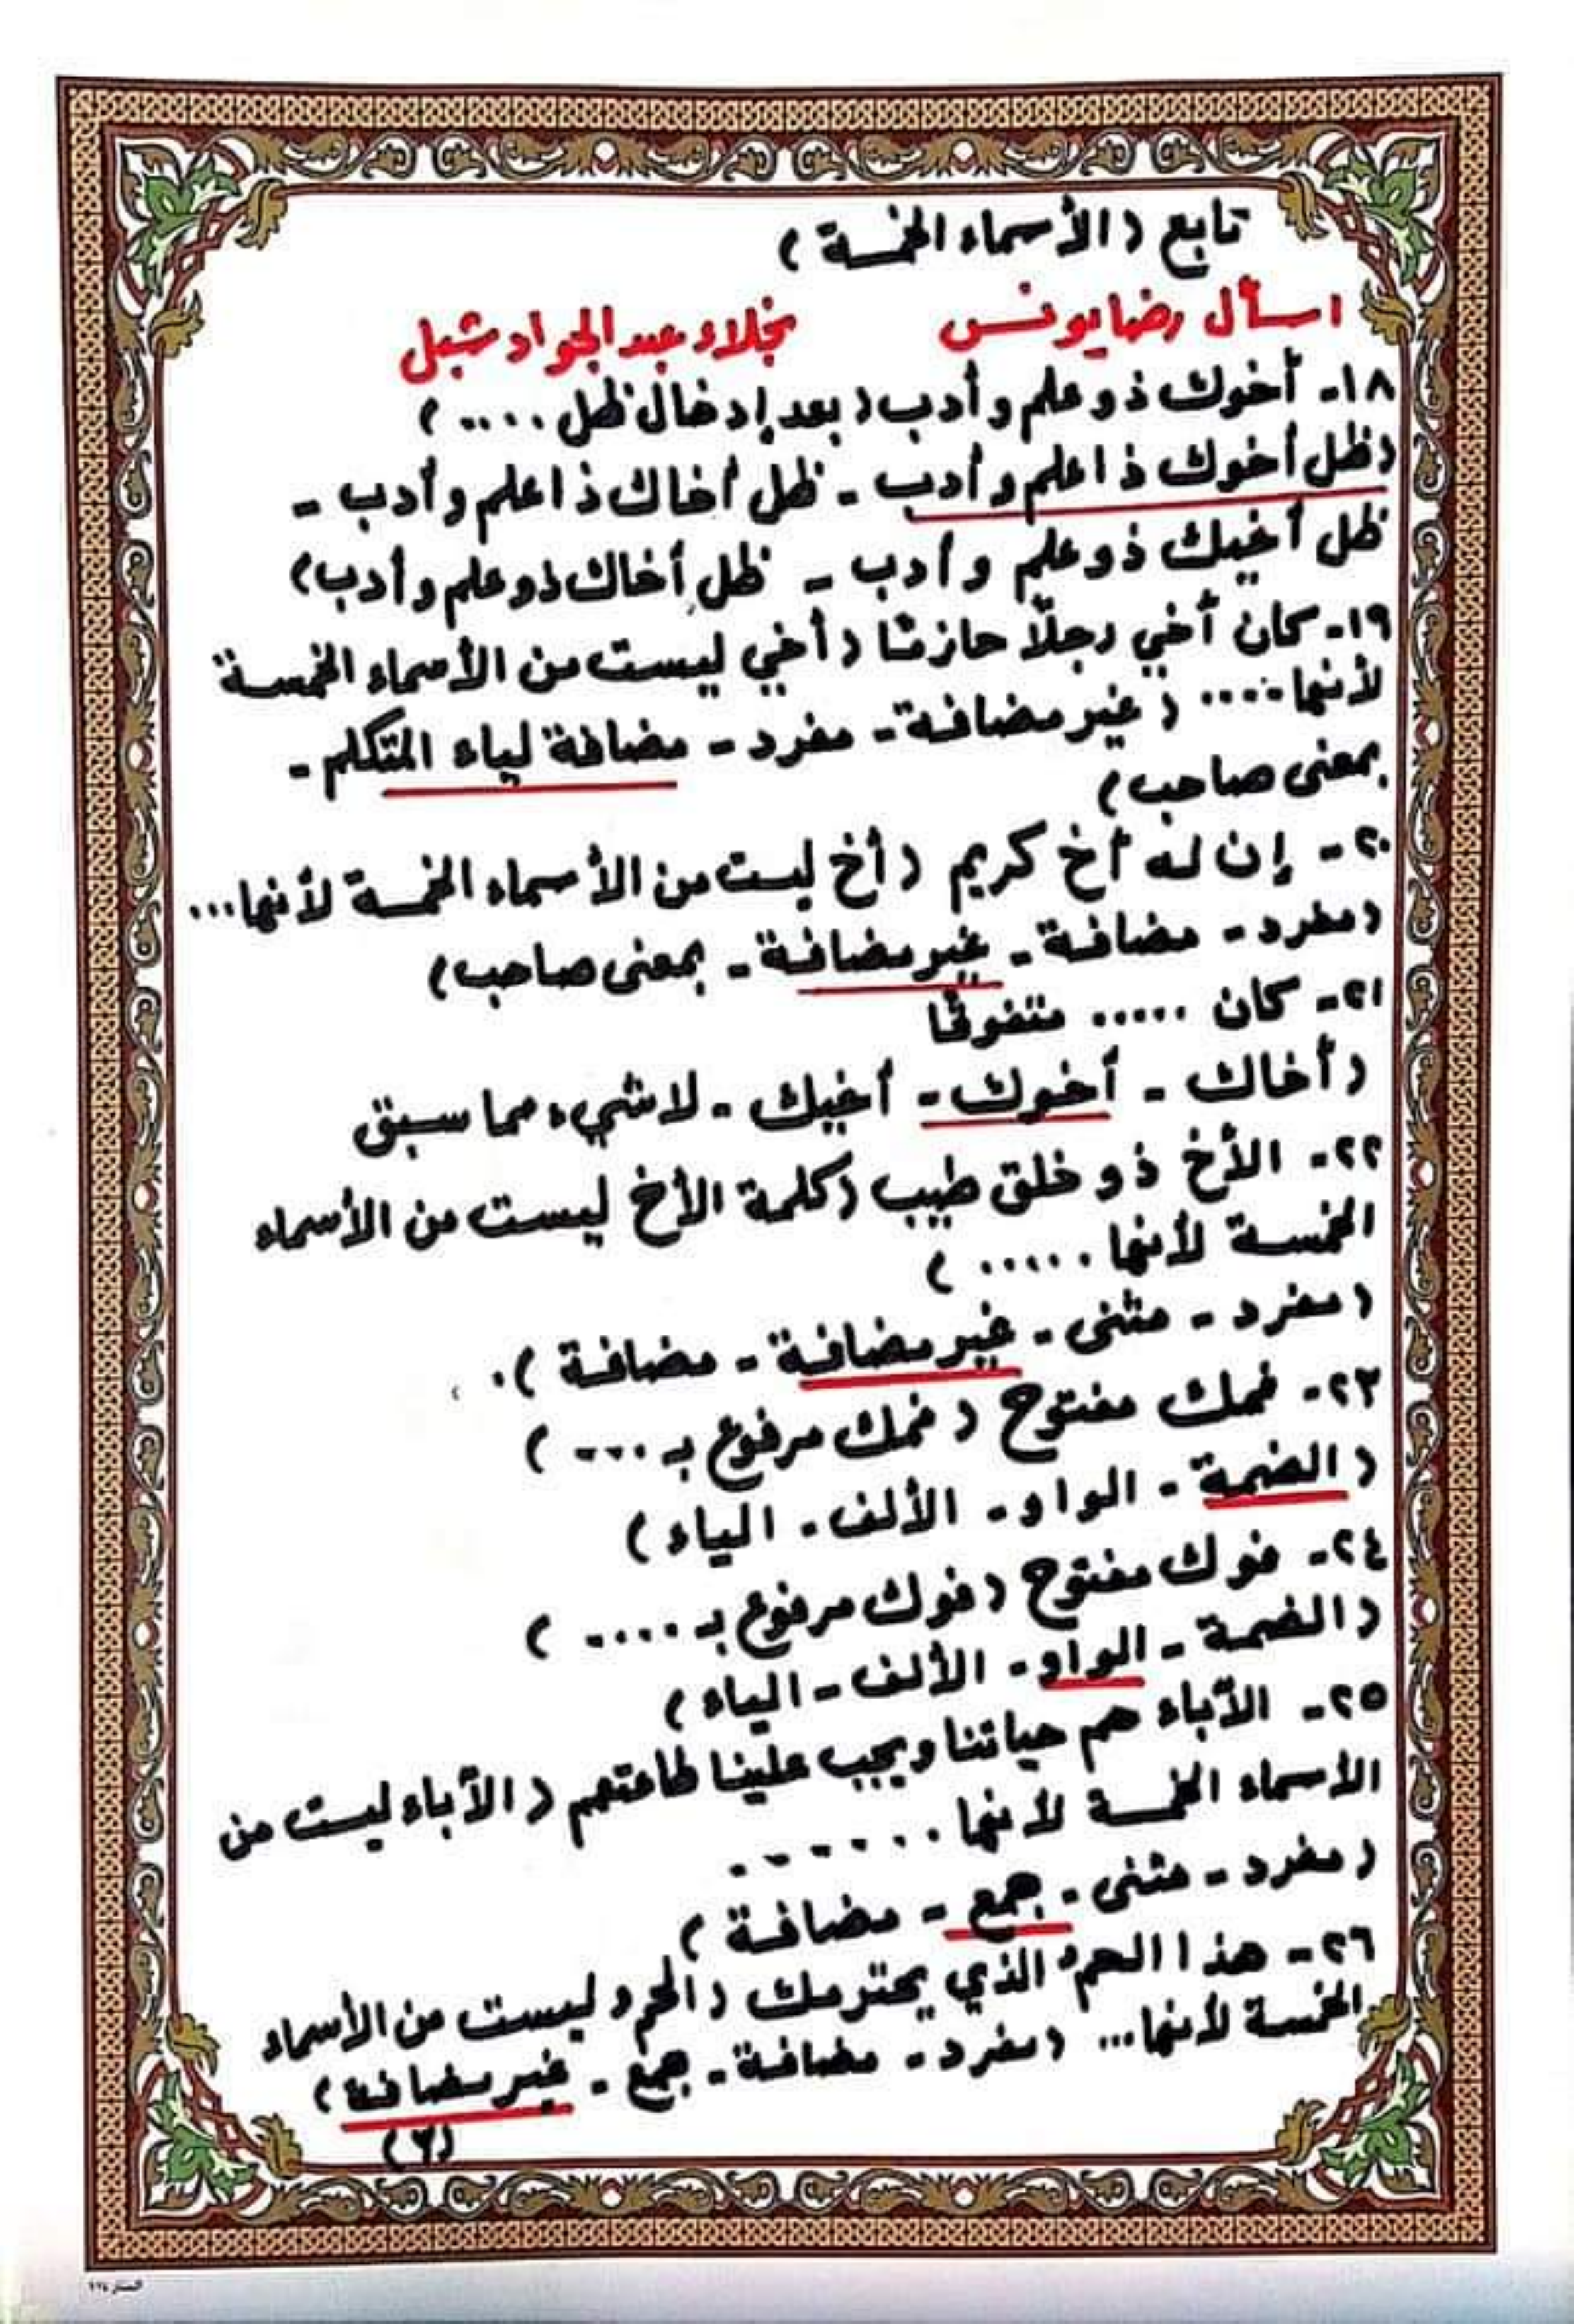 تابع (الأسماء الخمسة)
اسأل رضا يونس    نجلاء عبد الجواد شبل
١٨- أخوك ذو علم وأدب (بعد إدخال ظل ....)
(ظل أخوك ذا علم وأدب - ظل أخاك ذا علم وأدب -
ظل أخيك ذو علم وأدب - ظل أخاك ذو علم وأدب)
١٩- كان أخي رجلًا حازمًا (أخي ليست من الأسماء الخمسة
لأنها .... (غير مضافة - مفرد - مضافة لياء المتكلم -
بمعنى صاحب)
٢٠- إن له أخ كريم (أخ ليست من الأسماء الخمسة لأنها...
(مفرد - مضافة - غير مضافة - بمعنى صاحب)
٢١- كان ..... متفوقًا
(أخاك - أخوك - أخيك - لا شيء مما سبق
٢٢- الأخ ذو خلق طيب (كلمة الأخ ليست من الأسماء
الخمسة لأنها ..... )
(مفرد - مثنى - غير مضافة - مضافة).
٢٣- فمك مفتوح (فمك مرفوع بـ ....)
(الضمة - الواو - الألف - الياء)
٢٤- فوك مفتوح (فوك مرفوع بـ .....)
(الضمة - الواو - الألف - الياء)
٢٥- الآباء هم حياتنا ويجب علينا طاعتهم (الآباء ليست من
الأسماء الخمسة لأنها .......
(مفرد - مثنى - جمع - مضافة)
٢٦- هذا الحمو الذي يحترمك (الحمو ليست من الأسماء
الخمسة لأنها... (مفرد - مضافة - جمع - غير مضافة)
(٢)